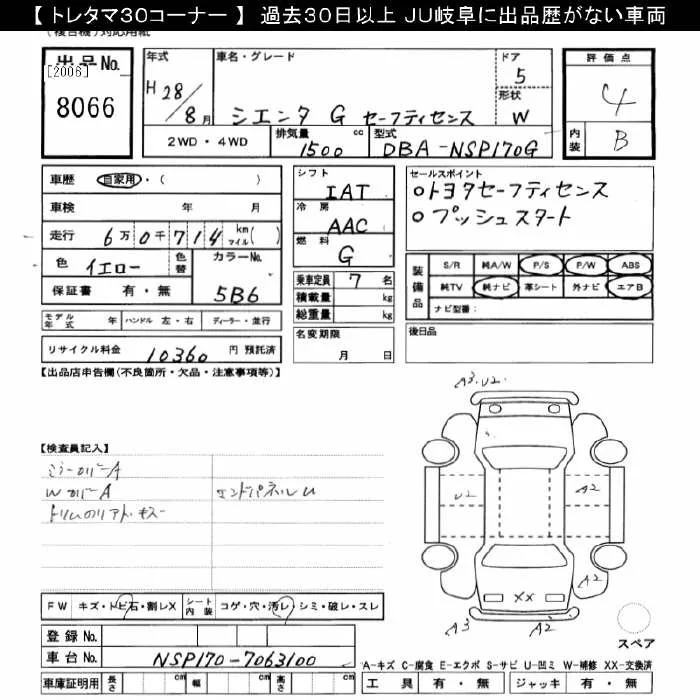 【 トレタマ30コーナー 】 過去30日以上 JU岐阜に出品歴がない車両
(複合機)対応用紙
出品No. [2006] 8066
年式 H28/8月
車名・グレード シエンタ G セーフティセンス
ドア 5
形状 W
評価点 4
内装 B
2WD・4WD
排気量 1500 cc
型式 DBA-NSP170G
車歴 自家用・( )
車検 年 月
走行 6万0千714 km マイル( )
色 イエロー 色替 カラーNo. 5B6
保証書 有・無
シフト IAT
冷房 AAC
燃料 G
セールスポイント
○トヨタセーフティセンス
○プッシュスタート
乗車定員 7 名
積載量 kg
総重量 kg
装備品 S/R 純A/W P/S P/W ABS
純TV 純ナビ 革シート 外ナビ エアB
ナビ型番:
モデル年式 年 ハンドル 左・右 ディーラー・並行
名変期限 月 日
後日品
リサイクル料金 10360 円 預託済
【出品店申告欄(不良箇所・欠品・注意事項等)】
【検査員記入】
ミラーカバーA
WカバーA エンドパネルU
トリムのリアト.キズ
A3.U2
U2 A2
XX A2
A3 A2
FW キズ・トビ石・割レX シート内装 コゲ・穴・汚レ・シミ・破レ・スレ
登録No.
車台No. NSP170-7063100
スペア
A-キズ C-腐食 E-エクボ S-サビ U-凹ミ W-補修 XX-交換済
車庫証明用 長さ cm 幅 cm 高さ cm
工具 有・無 ジャッキ 有・無